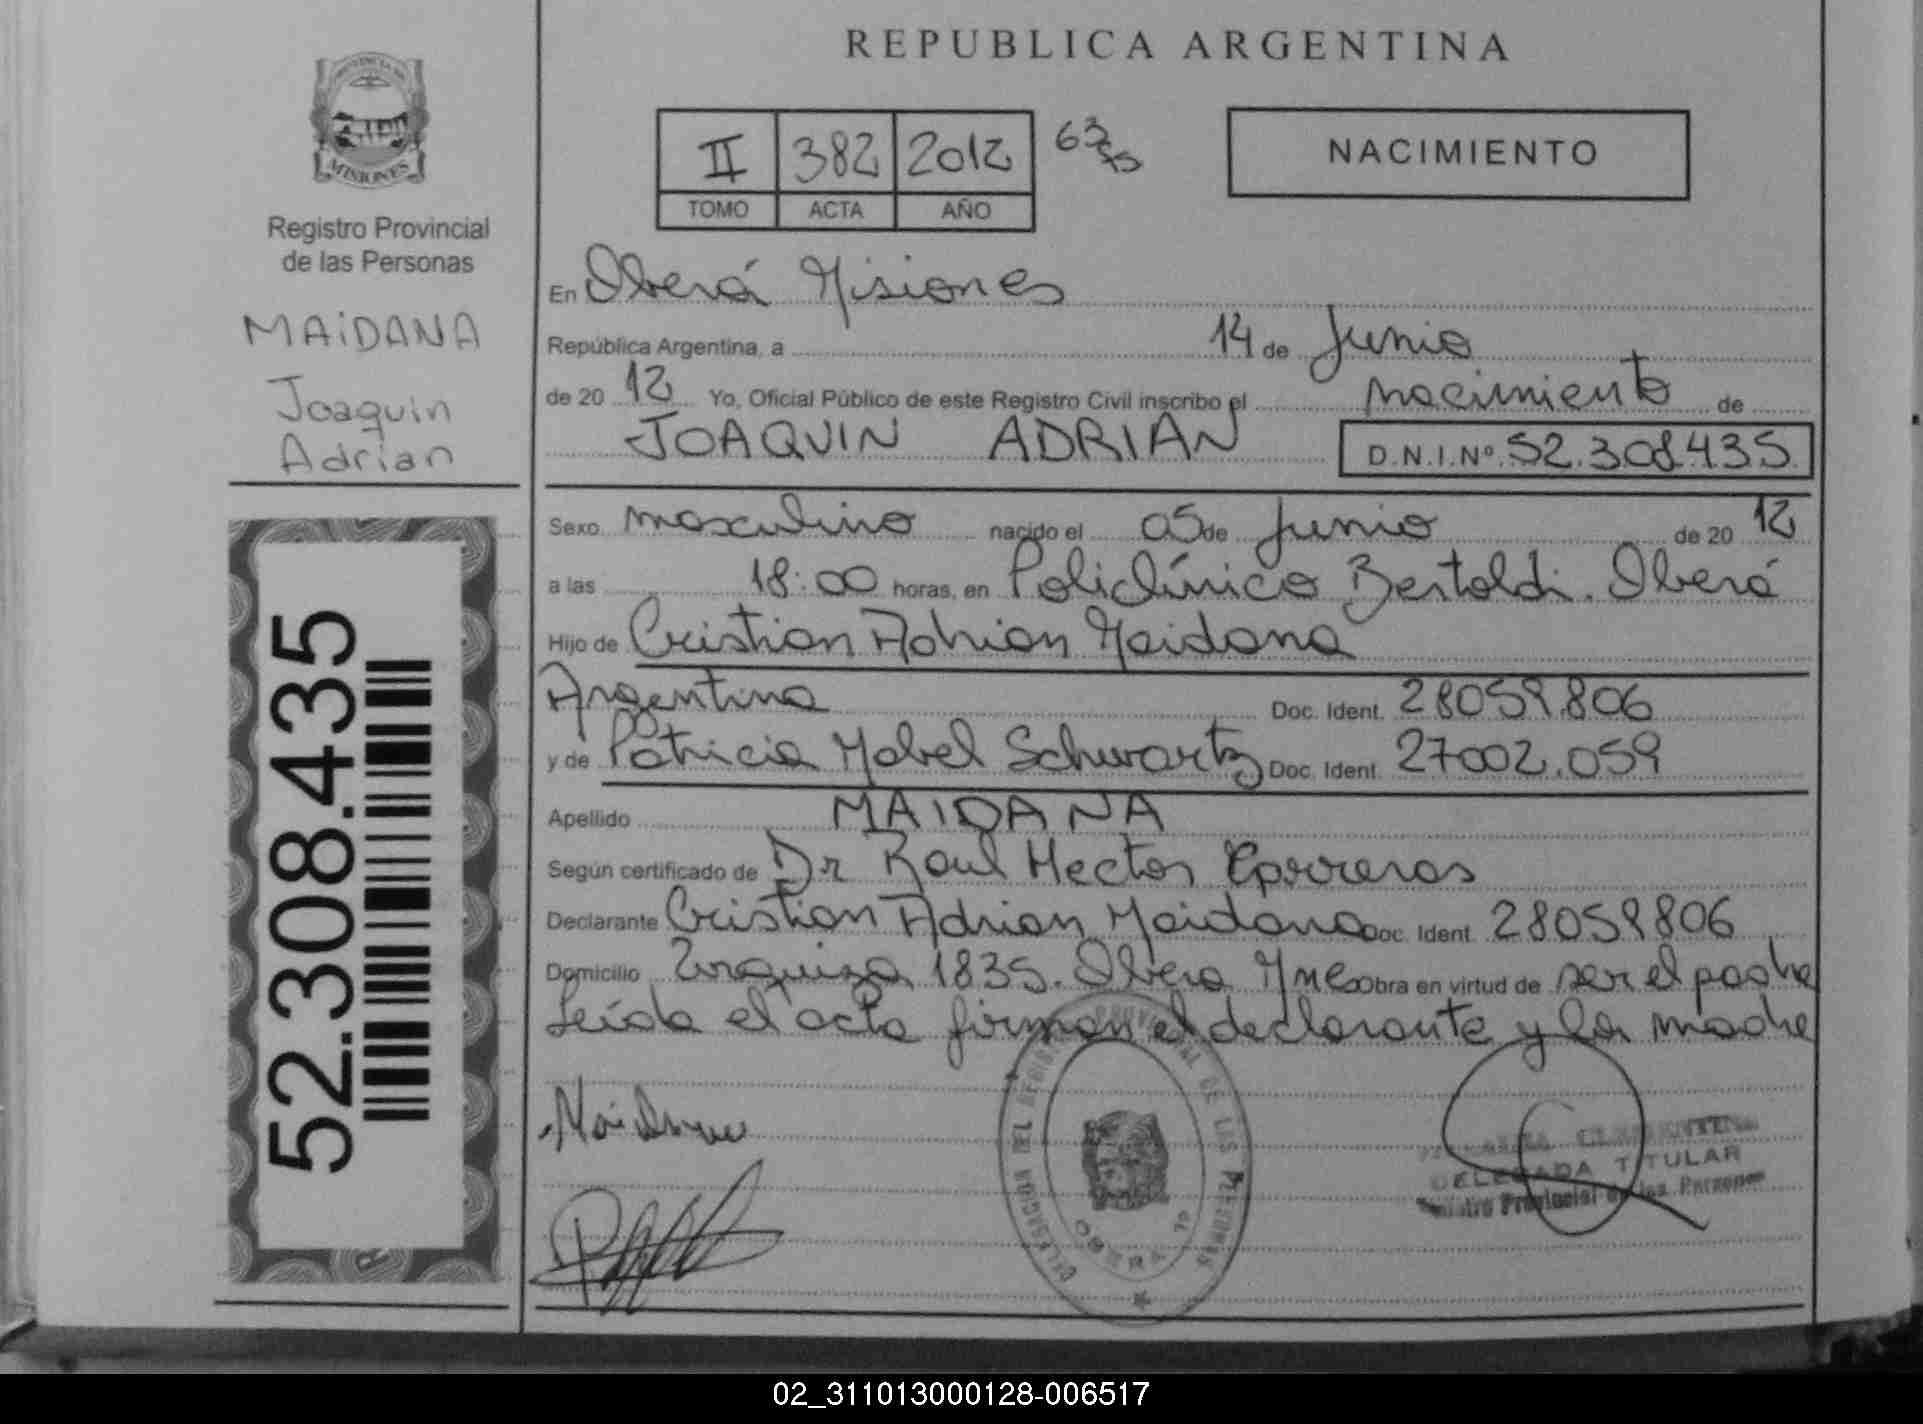 PROVINCIA DE
MISIONES
Registro Provincial
de las Personas
MAiDANA
Joaquin
Adrian
52.308.435
REPUBLICA ARGENTINA
II 382 2012
TOMO ACTA AÑO
NACIMIENTO
En Oberá Misiones
República Argentina, a 14 de Junio
de 20 12 Yo, Oficial Público de este Registro Civil inscribo el nacimiento de
JOAQUIN ADRIAN D.N.I.Nº. 52.308.435
Sexo masculino nacido el 05 de Junio de 20 12
a las 18:00 horas, en Policlínico Bertoldi. Oberá
Hijo de Cristian Adrian Maidana
Argentina Doc. Ident. 28059.806
y de Patricia Mabel Schwartz Doc. Ident. 27002.059
Apellido MAIDANA
Según certificado de Dr Raul Hector
Declarante Cristian Adrian Maidana Doc. Ident. 28059806
Domicilio Urquiza 1835. Obera Mnes Obra en virtud de ser el padre
Leída el acta firman el declarante y la madre
Maidana
DELEGACION DEL REGISTRO PROVINCIAL DE LAS PERSONAS
OBERA
DELEGADA TITULAR
Registro Provincial de las Personas
02_311013000128-006517